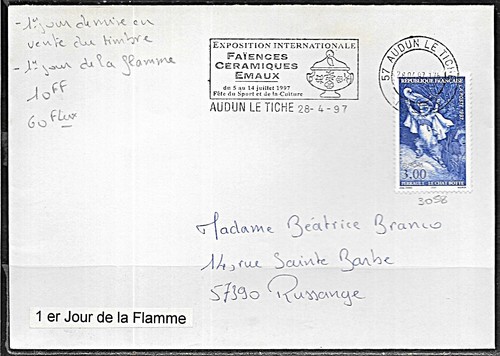 - 1er jour de mise en
vente du timbre
- 1er jour de la flamme
10FF
60 Flux
EXPOSITION INTERNATIONALE
FAÏENCES
CÉRAMIQUES
EMAUX
du 5 au 14 juillet 1997
Fête du Sport et de la Culture
AUDUN LE TICHE 28-4-97
57 AUDUN LE TICHE
REPUBLIQUE FRANÇAISE
3,00
PERRAULT - LE CHAT BOTTÉ
3058
Madame Béatrice Branco
14, rue Sainte Barbe
57390 Russange
1 er Jour de la Flamme